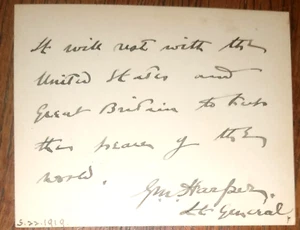 It will rest with the
United States and
Great Britain to keep
the peace of the
world.
G.M. Harper.
Lt General.
5-22-1919